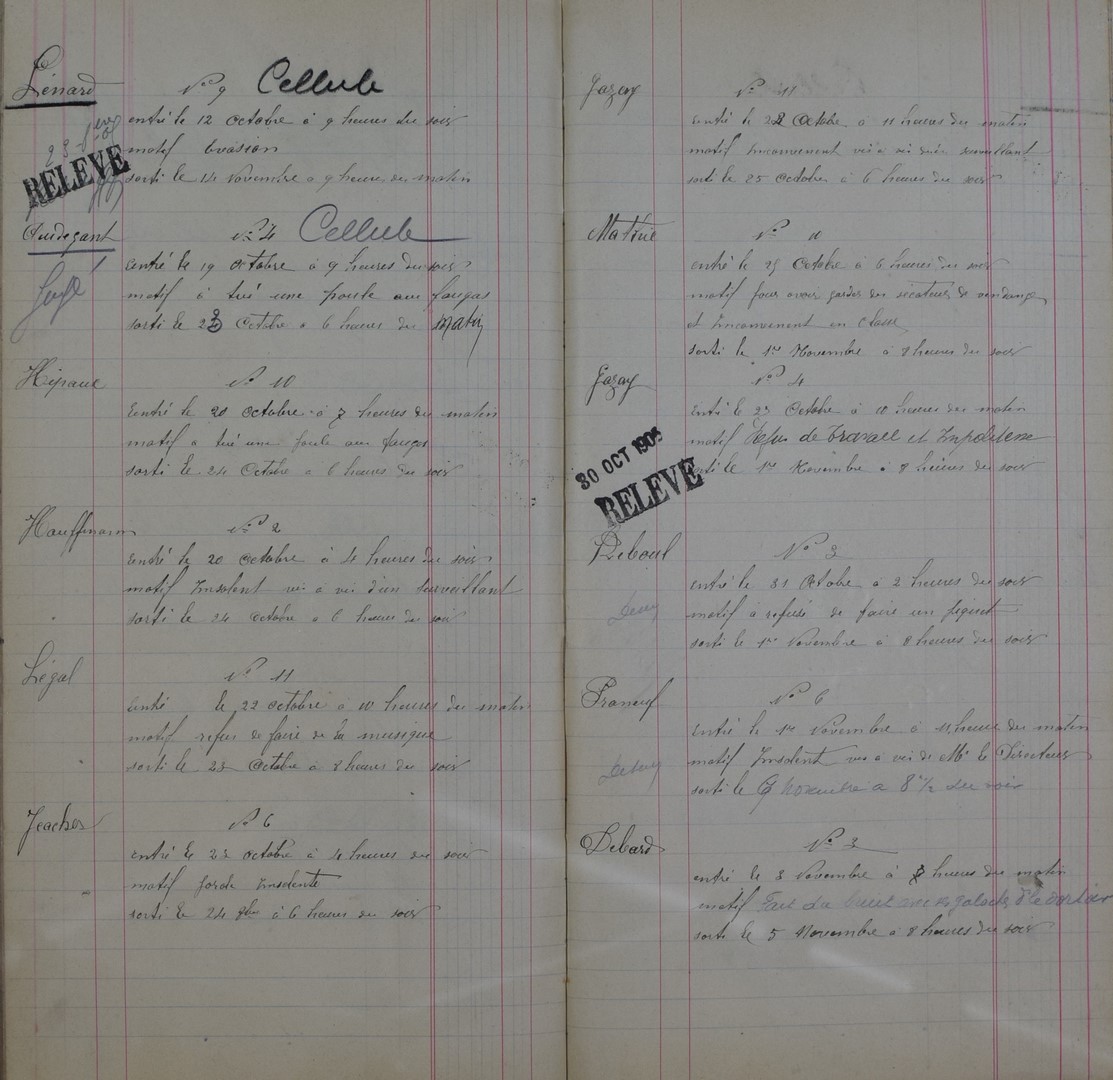 Lénard Nº 9 Cellule
entré le 12 octobre à 9 heures du soir
motif Evasion
RELEVE
sorti le 14 Novembre à 9 heures du matin
Nº 4 Cellule
entré le 19 Octobre à 9 heures du soir
motif à tué une poule aux
sorti le 23 Octobre à 6 heures du matin
Nº 10
Entré le 20 octobre à 7 heures du matin
motif a tué une poule aux
sorti le 24 Octobre à 6 heures du soir
Hauffmann Nº 2
Entré le 20 octobre à 4 heures du soir
motif Insolent vis à vis d'un surveillant
sorti le 24 octobre à 6 heures du soir
Légal Nº 11
Entré le 22 octobre à 10 heures du matin
motif refus de faire de la musique
sorti le 23 Octobre à 8 heures du soir
Nº 6
entré le 23 octobre à 4 heures du soir
motif Insolente
sorti le 24 à 6 heures du soir
Gazay Nº 11
entré le 22 Octobre à 11 heures du matin
motif Inconvenent vis à vis d'un surveillant
sorti le 25 octobre à 6 heures du soir
Nº 10
entré le 25 Octobre à 6 heures du soir
motif pour avoir garder des sécateurs de vendange
et Inconvenent en classe
sorti le 1er Novembre à 8 heures du soir
Gazay Nº 4
entré le 29 Octobre à 10 heures du matin
motif Refus de Travail et Impolitesse
sorti le 1er Novembre à 8 heures du soir
30 OCT 1905
RELEVE
Reboul Nº 3
entré le 31 Octobre à 2 heures du soir
motif à refusé de faire un piquet
sorti le 1er Novembre à 8 heures du soir
Nº 6
entré le 1er Novembre à 11 heures du matin
motif Insolent vis à vis de Mr le Directeur
sorti le novembre à 8h 1/2 du soir
Debard Nº 3
entré le 3 Novembre à heures du matin
motif Fait du bruit avec galoches dortoir
sorti le 5 Novembre à 8 heures du soir